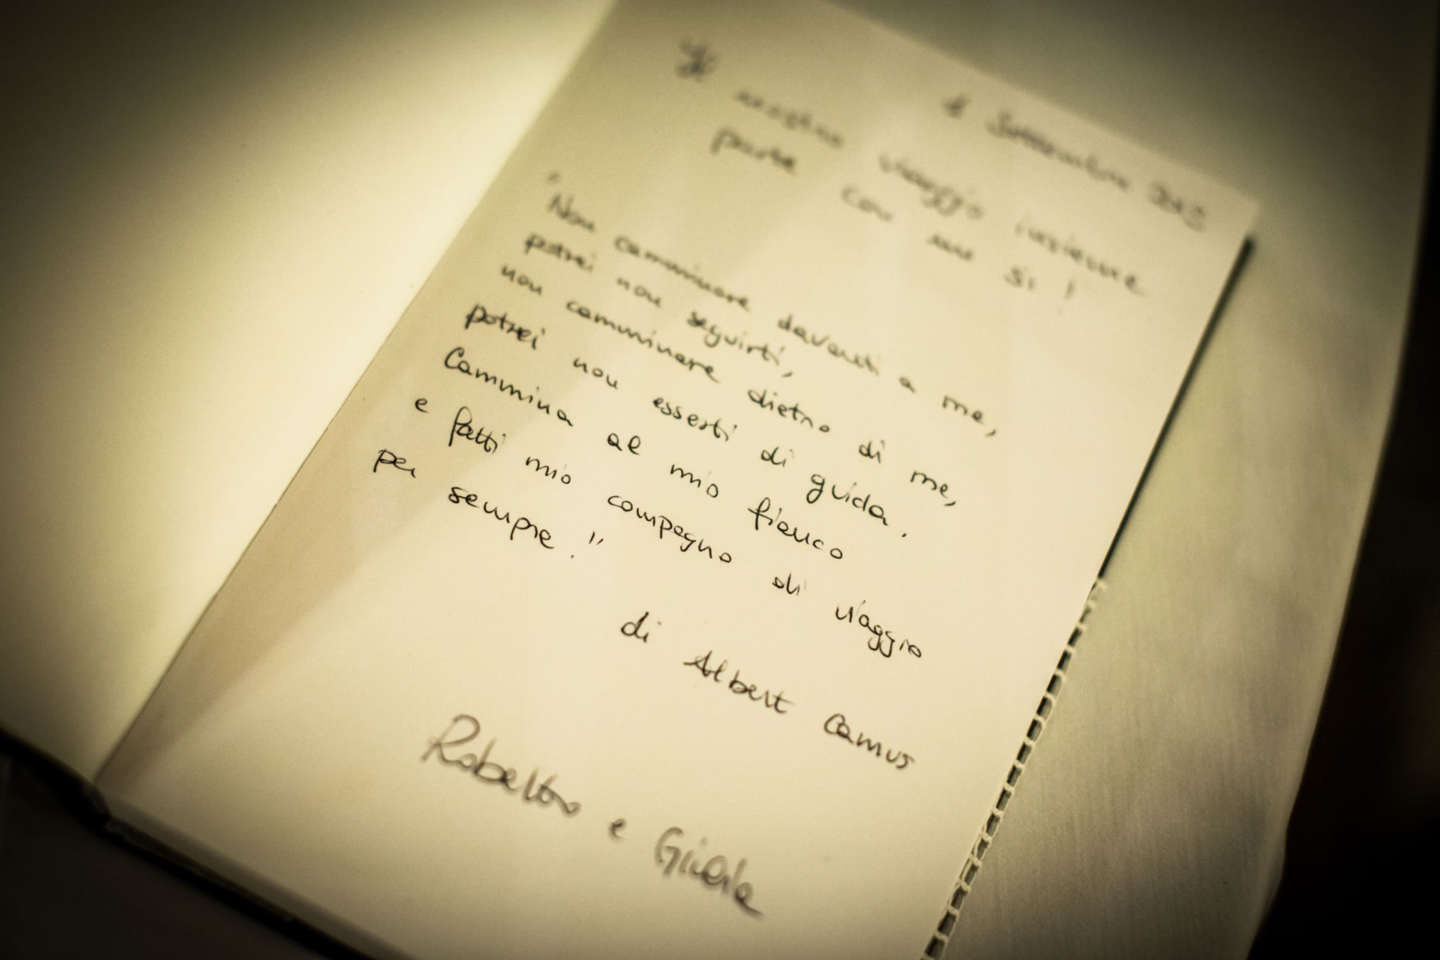 Settembre
Il nostro viaggio insieme
parte con un si!
"Non camminare davanti a me,
potrei non seguirti,
non camminare dietro di me,
potrei non esserti di guida.
Cammina al mio fianco
e fatti mio compagno di viaggio
per sempre."
di Albert Camus
Roberto e Giada